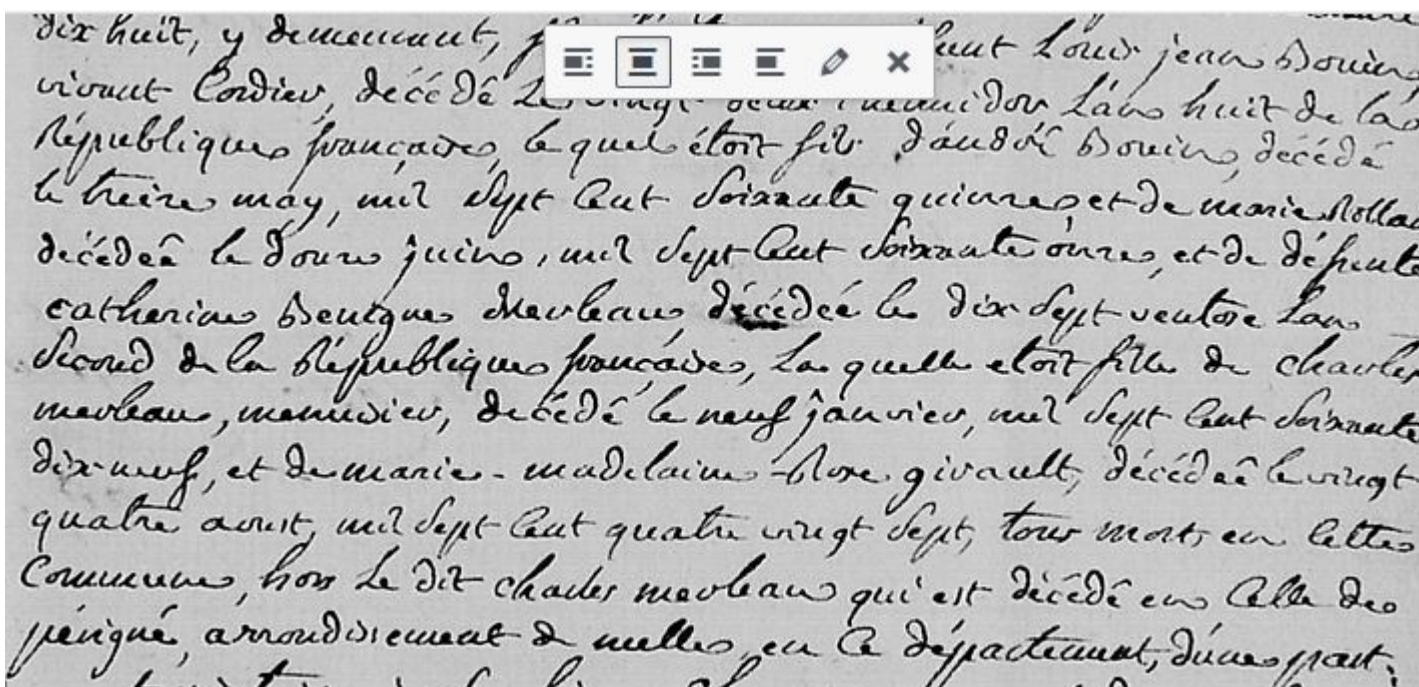 dix huit, y demeurant, Louis jean Bouin
vivant Cordier, décédé Le vingt deux thermidor L'an huit de la
République française, le quel étoit fils d'andré Bouin, décédé
le treize may, mil sept Cent Soixante quinze, et de marie Rollan
décédeé le douze juin, mil sept Cent Soixante onze, et de défunte
catherine Benigne Merleau, décédée le dix sept ventose L'an
Second de la République française, La quelle etoit fille de charles
merleau, menuisier, décédé le neuf janvier, mil sept Cent Soixante
dix-neuf, et de marie-madelaine-Rose givault, décédeé le vingt
quatre aoust, mil sept Cent quatre vingt sept, tous morts en Cette
Commune, hors Le dit charles merleau qui est décédé en Celle de
périgné, arrondissement de melle, en Ce département, d'une part;